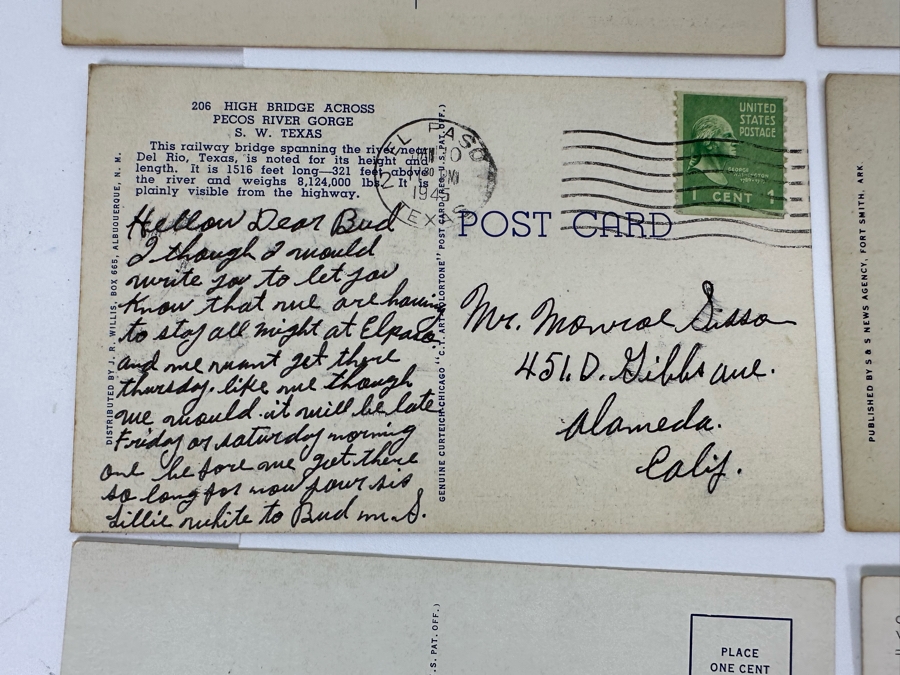 206 HIGH BRIDGE ACROSS
PECOS RIVER GORGE
S. W. TEXAS
This railway bridge spanning the river near
Del Rio, Texas, is noted for its height and
length. It is 1516 feet long—321 feet above
the river and weighs 8,124,000 lbs. It is
plainly visible from the highway.
DISTRIBUTED BY J. R. WILLIS, BOX 665, ALBUQUERQUE, N. M.
Hellow Dear Bud
I though I would
write you to let you
Know that we are having
to stay all night at Elpaso.
and we wont get there
thursday. like we though
we would. it will be late
Friday or saturday morning
one before we get there
so long for now your sis
Lillie white to Bud m. S.
GENUINE CURTEICH-CHICAGO "C.T. ART-COLORTONE" POST CARD (REG. U.S. PAT. OFF.)
EL PASO
1945
TEXAS
UNITED
STATES
POSTAGE
GEORGE
WASHINGTON
1 CENT 1
POST CARD
Mr. Monroe Sisson
451.D. Gibbs ave.
Alameda.
Calif.
PUBLISHED BY S & S NEWS AGENCY, FORT SMITH, ARK.
.S. PAT. OFF.)
PLACE
ONE CENT